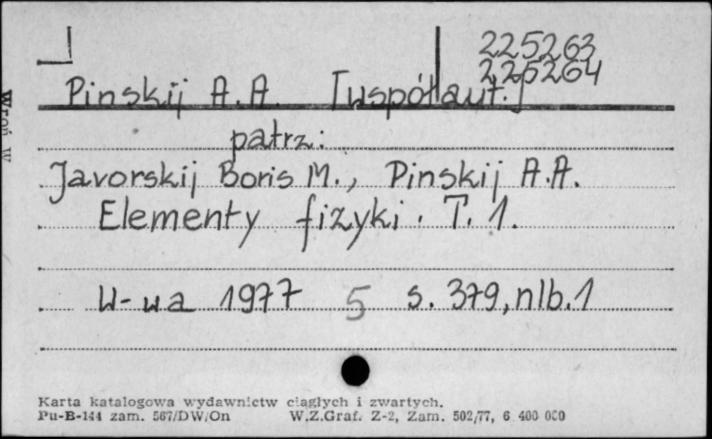 225263
225264
Pinskij A. A. [współaut.]
patrz:
Javorskij Boris M., Pinskij A.A.
Elementy fizyki. T. 1.
W-wa 1977 5 s. 379, nlb. 1
Karta katalogowa wydawnictw ciągłych i zwartych.
Pu-B-144 zam. 567/DW/On W.Z.Graf. Z-2, Zam. 502/77, 6 400 000